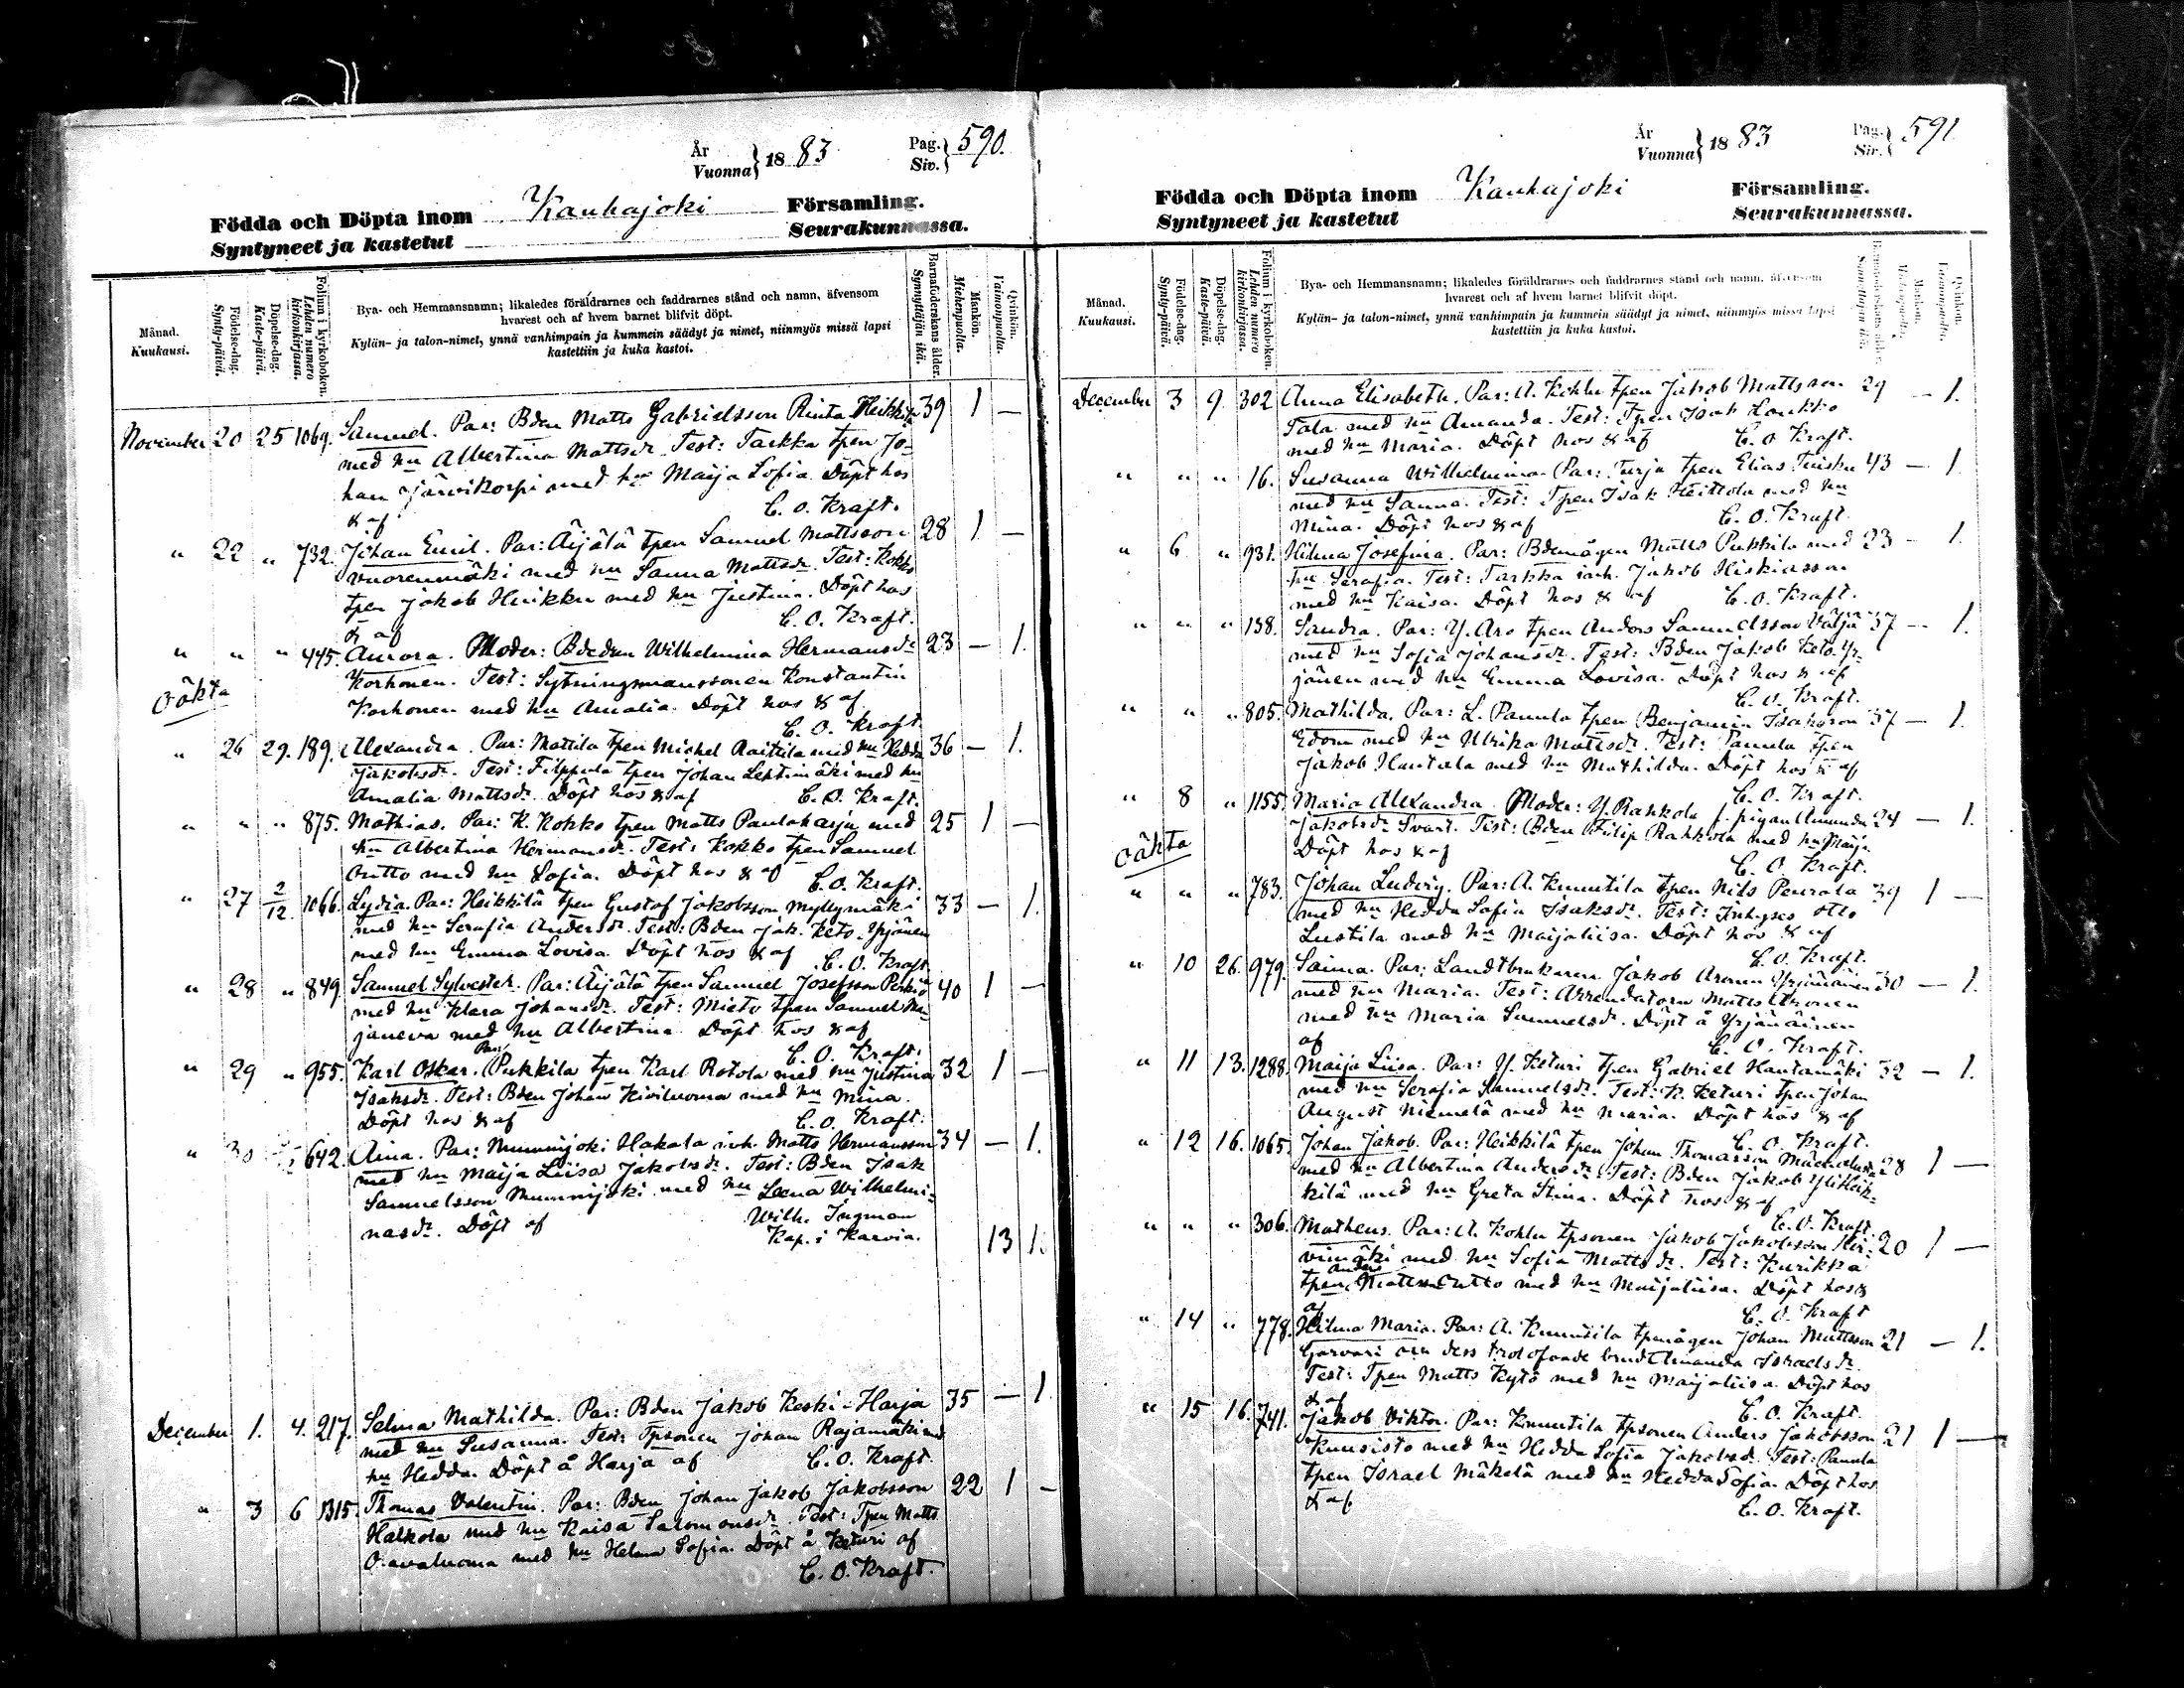 År
Vuonna } 18 83
Pag.
Siv. } 590.
Födda och Döpta inom Kauhajoki Församling.
Syntyneet ja kastetut Seurakunnassa.
Månad.
Kuukausi.
Födelse-dag.
Synty-päivä.
Döpelse-dag.
Kaste-päivä.
Folium i kyrkoboken.
Lehden numero kirkonkirjassa.
Bya- och Hemmansnamn; likaledes föräldrarnes och faddrarnes stånd och namn, äfvensom
hvarest och af hvem barnet blifvit döpt.
Kylän- ja talon-nimet, ynnä vanhimpain ja kummein säädyt ja nimet, niinmyös missä lapsi
kastettiin ja kuka kastoi.
Barnaföderskans ålder.
Synnyttäjän ikä.
Mankön.
Miehenpuolia.
Qvinkön.
Vaimonpuolia.
November 20 25 1069. Samuel. Par: Bden Matts Gabrielsson Rinta Heikkilä 39 1 —
med hu Albertina Mattsdr. Test: Tarkka tpen Jo-
han Järvikorpi med hu Maija Sofia. Döpt hos
& af C. O. Kraft.
" 22 " 732. Johan Emil. Par: Äijälä tpen Samuel Mattsson 28 1 —
Vuorenmäki med hu Sanna Mattsdr. Test: Kokko
tpen Jakob Huikku med hu Justina. Döpt hos
& af C. O. Kraft.
" " " 445. Aurora. Moder: Bdedun Wilhelmina Hermansdr 23 — 1.
oäkta Korhonen. Test: Sytningsmanssonen Konstantin
Korhonen med hu Amalia. Döpt hos & af
C. O. Kraft.
" 26 29. 189. Alexandra. Par: Mattila tpen Michel Raittila med hu Hedda 36 — 1.
Jakobsdr. Test: Filppula tpen Johan Leptimäki med hu
Amalia Mattsdr. Döpt hos & af C. O. Kraft.
" " " 875. Mathias. Par: K. Kokko tpen Matts Paulaharju med 25 1 —
hu Albertina Hermansdr. Test: Kokko tpen Samuel
Outto med hu Sofia. Döpt hos & af C. O. Kraft.
" 27 2/12. 1066. Lydia. Par: Heikkilä tpen Gustaf Jakobsson Myllymäki 33 — 1.
med hu Serafia Andersdr. Test: Bden Jak. Keto-Yrjänen
med hu Emma Lovisa. Döpt hos & af C. O. Kraft.
" 28 " 849. Samuel Sylvester. Par: Äijälä tpen Samuel Josefsson Perkiö 40 1 —
med hu Klara Johansdr. Test: Mieto tpen Samuel Ma-
janeva med hu Albertina. Döpt hos & af
C. O. Kraft.
" 29 " 955. Karl Oskar. Par: Pukkila tpen Karl Rotola med hu Justina 32 1 —
Isaksdr. Test: Bden Johan Kiviluoma med hu Mina.
Döpt hos & af C. O. Kraft.
" 30 642. Aina. Par: Nummijoki Hakala inh. Matts Hermansson 34 — 1.
med hu Maija Liisa Jakobsdr. Test: Bden Isak
Samuelsson Nummijoki med hu Leena Wilhelmi-
nasdr. Döpt af Wilh. Ingman
Kap. i Karvia.
13 1.
December 1. 4. 217. Selma Mathilda. Par: Bden Jakob Keski-Harja 35 — 1
med hu Susanna. Test: Tpsonen Johan Rajamäki med
hu Hedda. Döpt å Harja af C. O. Kraft.
" 3 6 1315. Thomas Valentin. Par: Bden Johan Jakob Jakobsson 22 1 —
Halkola med hu Kaisa Salomonsdr. Test: Tpen Matts
med hu Helena Sofia. Döpt å Keturi af
C. O. Kraft.
År
Vuonna } 18 83
Pag.
Siv. } 591
Födda och Döpta inom Kauhajoki Församling.
Syntyneet ja kastetut Seurakunnassa.
Månad.
Kuukausi.
Födelse-dag.
Synty-päivä.
Döpelse-dag.
Kaste-päivä.
Folium i kyrkoboken.
Lehden numero kirkonkirjassa.
Bya- och Hemmansnamn; likaledes föräldrarnes och faddrarnes stånd och namn, äfvensom
hvarest och af hvem barnet blifvit döpt.
Kylän- ja talon-nimet, ynnä vanhimpain ja kummein säädyt ja nimet, niinmyös missä lapsi
kastettiin ja kuka kastoi.
December 3 9 302 Anna Elisabeth. Par: A. Kohlu tpen Jakob Mattsson 29 — 1.
Tala med hu Amanda. Test: Tpen Isak Loukko
med hu Maria. Döpt hos & af C. O. Kraft.
" " " 16. Susanna Wilhelmina. Par: Turja tpen Elias Tuisku 43 — 1
med hu Sanna. Test: Tpen Isak Heittola med hu
Mina. Döpt hos & af C. O. Kraft.
" 6 " 931. Hilma Josefina. Par: Bdemågen Matts Pukkila med 23 — 1.
hu Serafia. Test: Tarkka inh. Jakob Hiskiasson
med hu Kaisa. Döpt hos & af C. O. Kraft.
" " " 138. Sandra. Par: Y. Aro tpen Anders Samuelsson Väljä 37 — 1.
med hu Sofia Johansdr. Test: Bden Jakob Keto-Yr-
jänen med hu Emma Lovisa. Döpt hos & af
C. O. Kraft.
" " " 805. Mathilda. Par: L. Panula tpen Benjamin Isaksson 37 — 1.
med hu Ulrika Mattsdr. Test: Panula tpen
Jakob Hautala med hu Mathilda. Döpt hos & af
C. O. Kraft.
" 8 " 1155. Maria Alexandra. Moder: Y. Rahkola f. pigan Amanda 24 — 1.
oäkta Jakobsdr Svart. Test: Bden Filip Rahkola med hu Maija
Döpt hos & af C. O. Kraft.
" " " 783. Johan Ludvig. Par: A. Knuutila tpen Nils Penrala 39 1 —
med hu Hedda Sofia Isaksdr. Test: Inhyses Otto
Lustila med hu Maijaliisa. Döpt hos & af
C. O. Kraft.
" 10 26. 979. Saima. Par: Landtbrukaren Jakob Aronen Yrjänäinen 30 — 1.
med hu Maria. Test: Arrendatorn Matts Aronen
med hu Maria Samuelsdr. Döpt å Yrjänäinen
af C. O. Kraft.
" 11 13. 1288. Maija Liisa. Par: Y. Keturi tpen Gabriel Hautamäki 32 — 1.
med hu Serafia Samuelsdr. Test: K. Keturi tpen Johan
August Niemelä med hu Maria. Döpt hos & af
C. O. Kraft.
" 12 16. 1065. Johan Jakob. Par: Heikkilä tpen Johan Thomasson 28 1 —
med hu Albertina Andersdr. Test: Bden Jakob Yliheik-
kilä med hu Greta Stina. Döpt hos & af
C. O. Kraft.
" " " 306. Matheus. Par: A. Kohlu tpsonen Jakob Jakobsson Hir- 20 1 —
vimäki med hu Sofia Mattsdr. Test: Kurikka
tpen Anders Mattsson Outto med hu Maijaliisa. Döpt hos &
af C. O. Kraft
" 14 " 778. Hilma Maria. Par: A. Knuutila tpmågen Johan Mattsson 21 — 1.
Garvari och dess trolofvade brud Amanda Israelsdr.
Test: Tpen Matts Kytö med hu Maijaliisa. Döpt hos
& af C. O. Kraft.
" 15 16. 741. Jakob Viktor. Par: Knuutila tpsonen Anders Jakobsson 21 1 —
Kuusisto med hu Hedda Sofia Jakobsdr. Test: Panula
tpen Israel Mäkelä med hu Hedda Sofia. Döpt hos
& af C. O. Kraft.